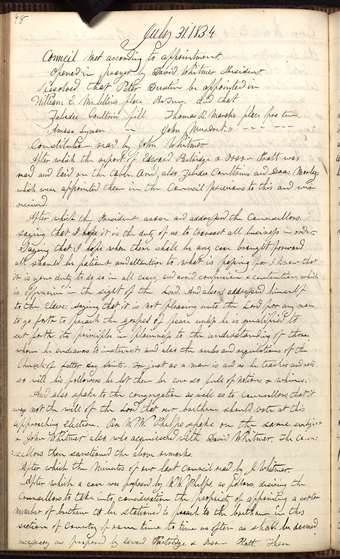 48
July 31 1834
Council met according to appointment
Opened in prayer by David Whitmer President
Resolved that Peter Dustin be appointed in
William E. McLellins place Pro Tem. and that
Zebedee Coultrin fill Thomas B. Marshs place pro tem
Amasa Lyman " John Murdock " - - - -
Constitution read by John Whitmer
After which the report of Edward Partridge & Orson Pratt was
read and laid on the table, and also Zebedee Coultrin and Isaac Morley
which were appointed them in the Council previous to this and were
received
After which the President arose and addressed the Counsellors.
saying that I hope it is the duty of us to transact all business in order
Saying that I hope when there shall be any case brought forward
all should be patient and attention to what is passing for I know that
it is your duty to do so in all cases, and avoid confusion & contention which
is offensive in the sight of the Lord. And also addressed himself
to the elders: saying that it is not pleasing unto the Lord for any man
to go forth to preach the gospel of peace unless he is qualified to
set forth its principles in plainness to the understanding of those
whom he endeavors to instruct and also the rules and regulations of the
Church of latter day saints. For just as a man is and as he teaches and acts
so will his followers be let them be ever so full of notions or whims.
And also spoke to the congregation as well as to counsellors that it
was not the will of the Lord that our brethren should vote at this
approaching election. Pres W W Phelps spoke on the same subject
& John Whitmer also who acquiesced with David Whitmer. The Coun-
sellors then sanctioned the above remarks.
After which the Minutes of our last Council read by J. Whitmer.
After which a case was proposed by W W Phelps as follows desiring the
Counsellors to take into consideration the propriety of appointing a certain
number of brethren to be stationed to preach to the brethren in this
section of Country from time to time as often as shall be deemed
necessary as proposed by Edward Partridge & Orson Pratt. Then